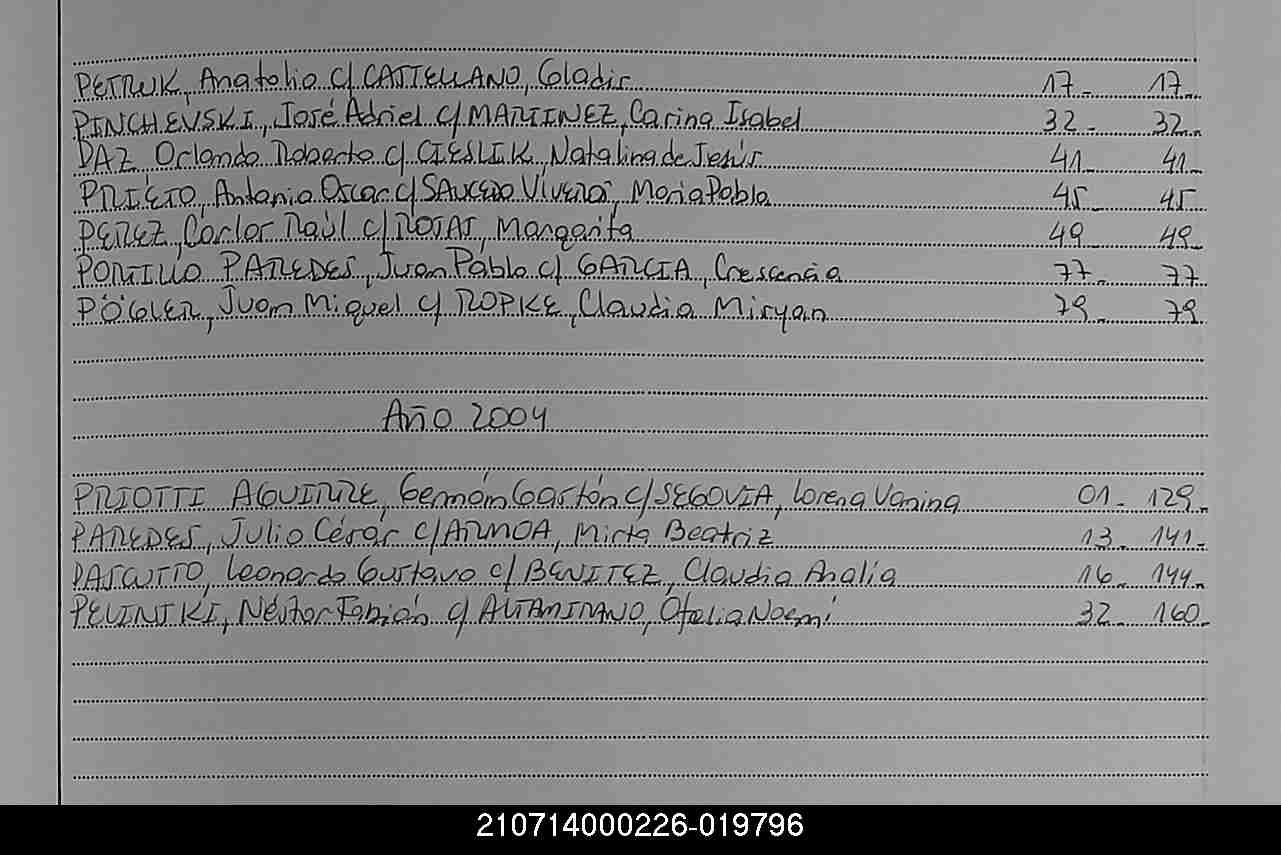 PETRUK, Anatolio c/ CASTELLANO, Gladis 17- 17-
PINCHEVSKI, José Adriel c/ MARTINEZ, Carina Isabel 32- 32-
PAZ, Orlando Roberto c/ CIESLIK, Natalina de Jesús 41- 41-
PRIETO, Antonio Oscar c/ SAUCEDO VIVEROS, María Pabla 45- 45
PEREZ, Carlos Raúl c/ ROJAS, Margarita 49- 49-
PORTILLO PAREDES, Juan Pablo c/ GARCIA, Crescencia 77- 77
PÖGLER, Juan Miguel c/ ROPKE, Claudia Miryan 79- 79
Año 2004
PRIOTTI AGUIRRE, Germán Gastón c/ SEGOVIA, Lorena Vanina 01- 129-
PAREDES, Julio César c/ ARMOA, Mirta Beatriz 13- 141-
PASCUTTO, Leonardo Gustavo c/ BENITEZ, Claudia Analía 16- 144-
PELINSKI, Néstor Fabián c/ ALTAMIRANO, Ofelia Noemí 32- 160-
210714000226-019796